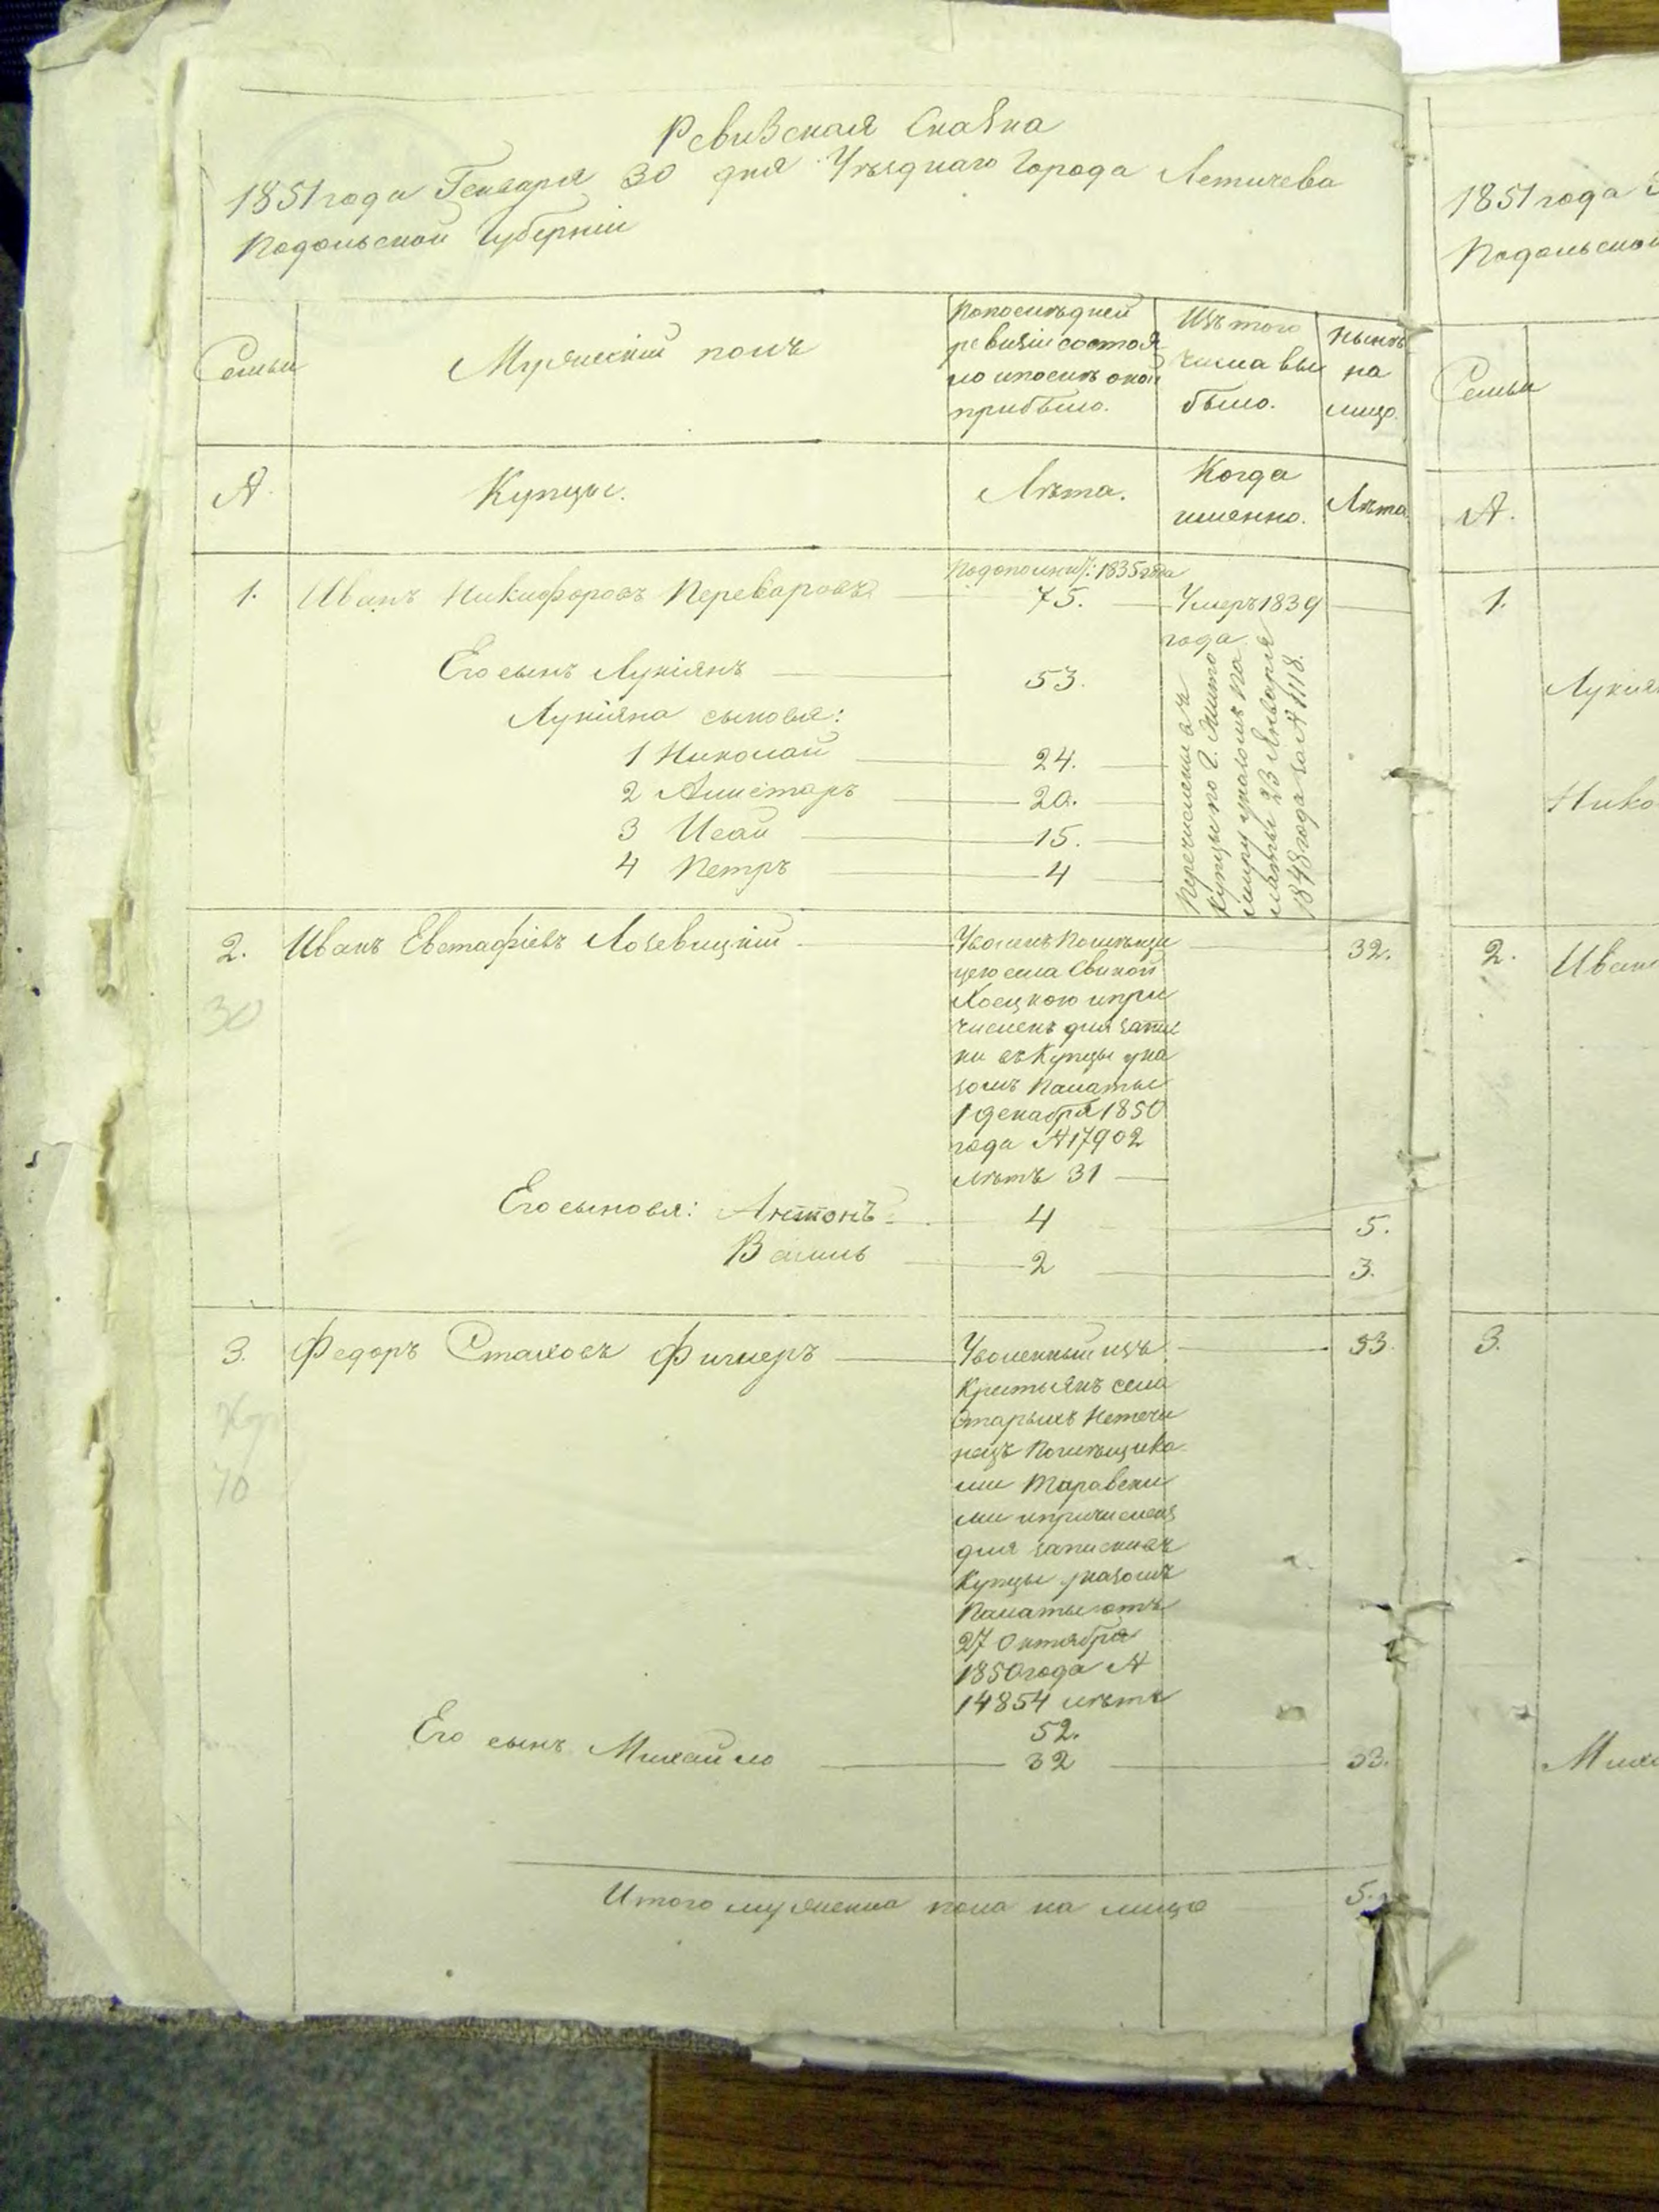 Ревизская Сказка
1851 года Генваря 30 дня Уѣзднаго Города Летичева
Подольской Губерніи
Семьи
Мужескій полъ
По послѣдней
ревизіи состоя
ло и послѣ оной
прибыло.
Изъ того
числа вы
было.
Нынѣ
на
лицо.
№
Купцы.
Лѣта.
Когда
именно.
Лѣта.
1.
Иванъ Никифоровъ Переваровъ
1835 года
75.
Умеръ 1839
года
Его сынъ Лукіянъ
53.
Лукіяна сыновья:
1 Николай
24.
2
20.
3 Исай
15.
4 Петръ
4
Перечислены въ
купцы по г. Жито
миру указомъ Па
латы 23 Января
1848 года за № 1118.
2.
Иванъ Евстафіевъ Лозевицкій
Уволенъ Помѣщи
цею села Свиной
и при
численъ для запис
ки въ Купцы ука
зомъ Палаты
1 декабря 1850
года № 17902
лѣтъ 31
32.
30
Его сыновья: Антонъ
4
5.
Василь
2
3.
3.
Федоръ Стаховъ Фишеръ
Уволенный изъ
Крестьянъ села
Старыхъ Нетечи
нецъ Помѣщика
ми Таравски
ми и причисленъ
для записки въ
Купцы указомъ
Палаты отъ
27 Октября
1850 года №
14854 лѣтъ
52.
53.
70
Его сынъ Михайло
32
33.
Итого мужеска пола на лицо
5.
1851 года
Подольской
Семьи
№.
1.
2.
Иван
3.